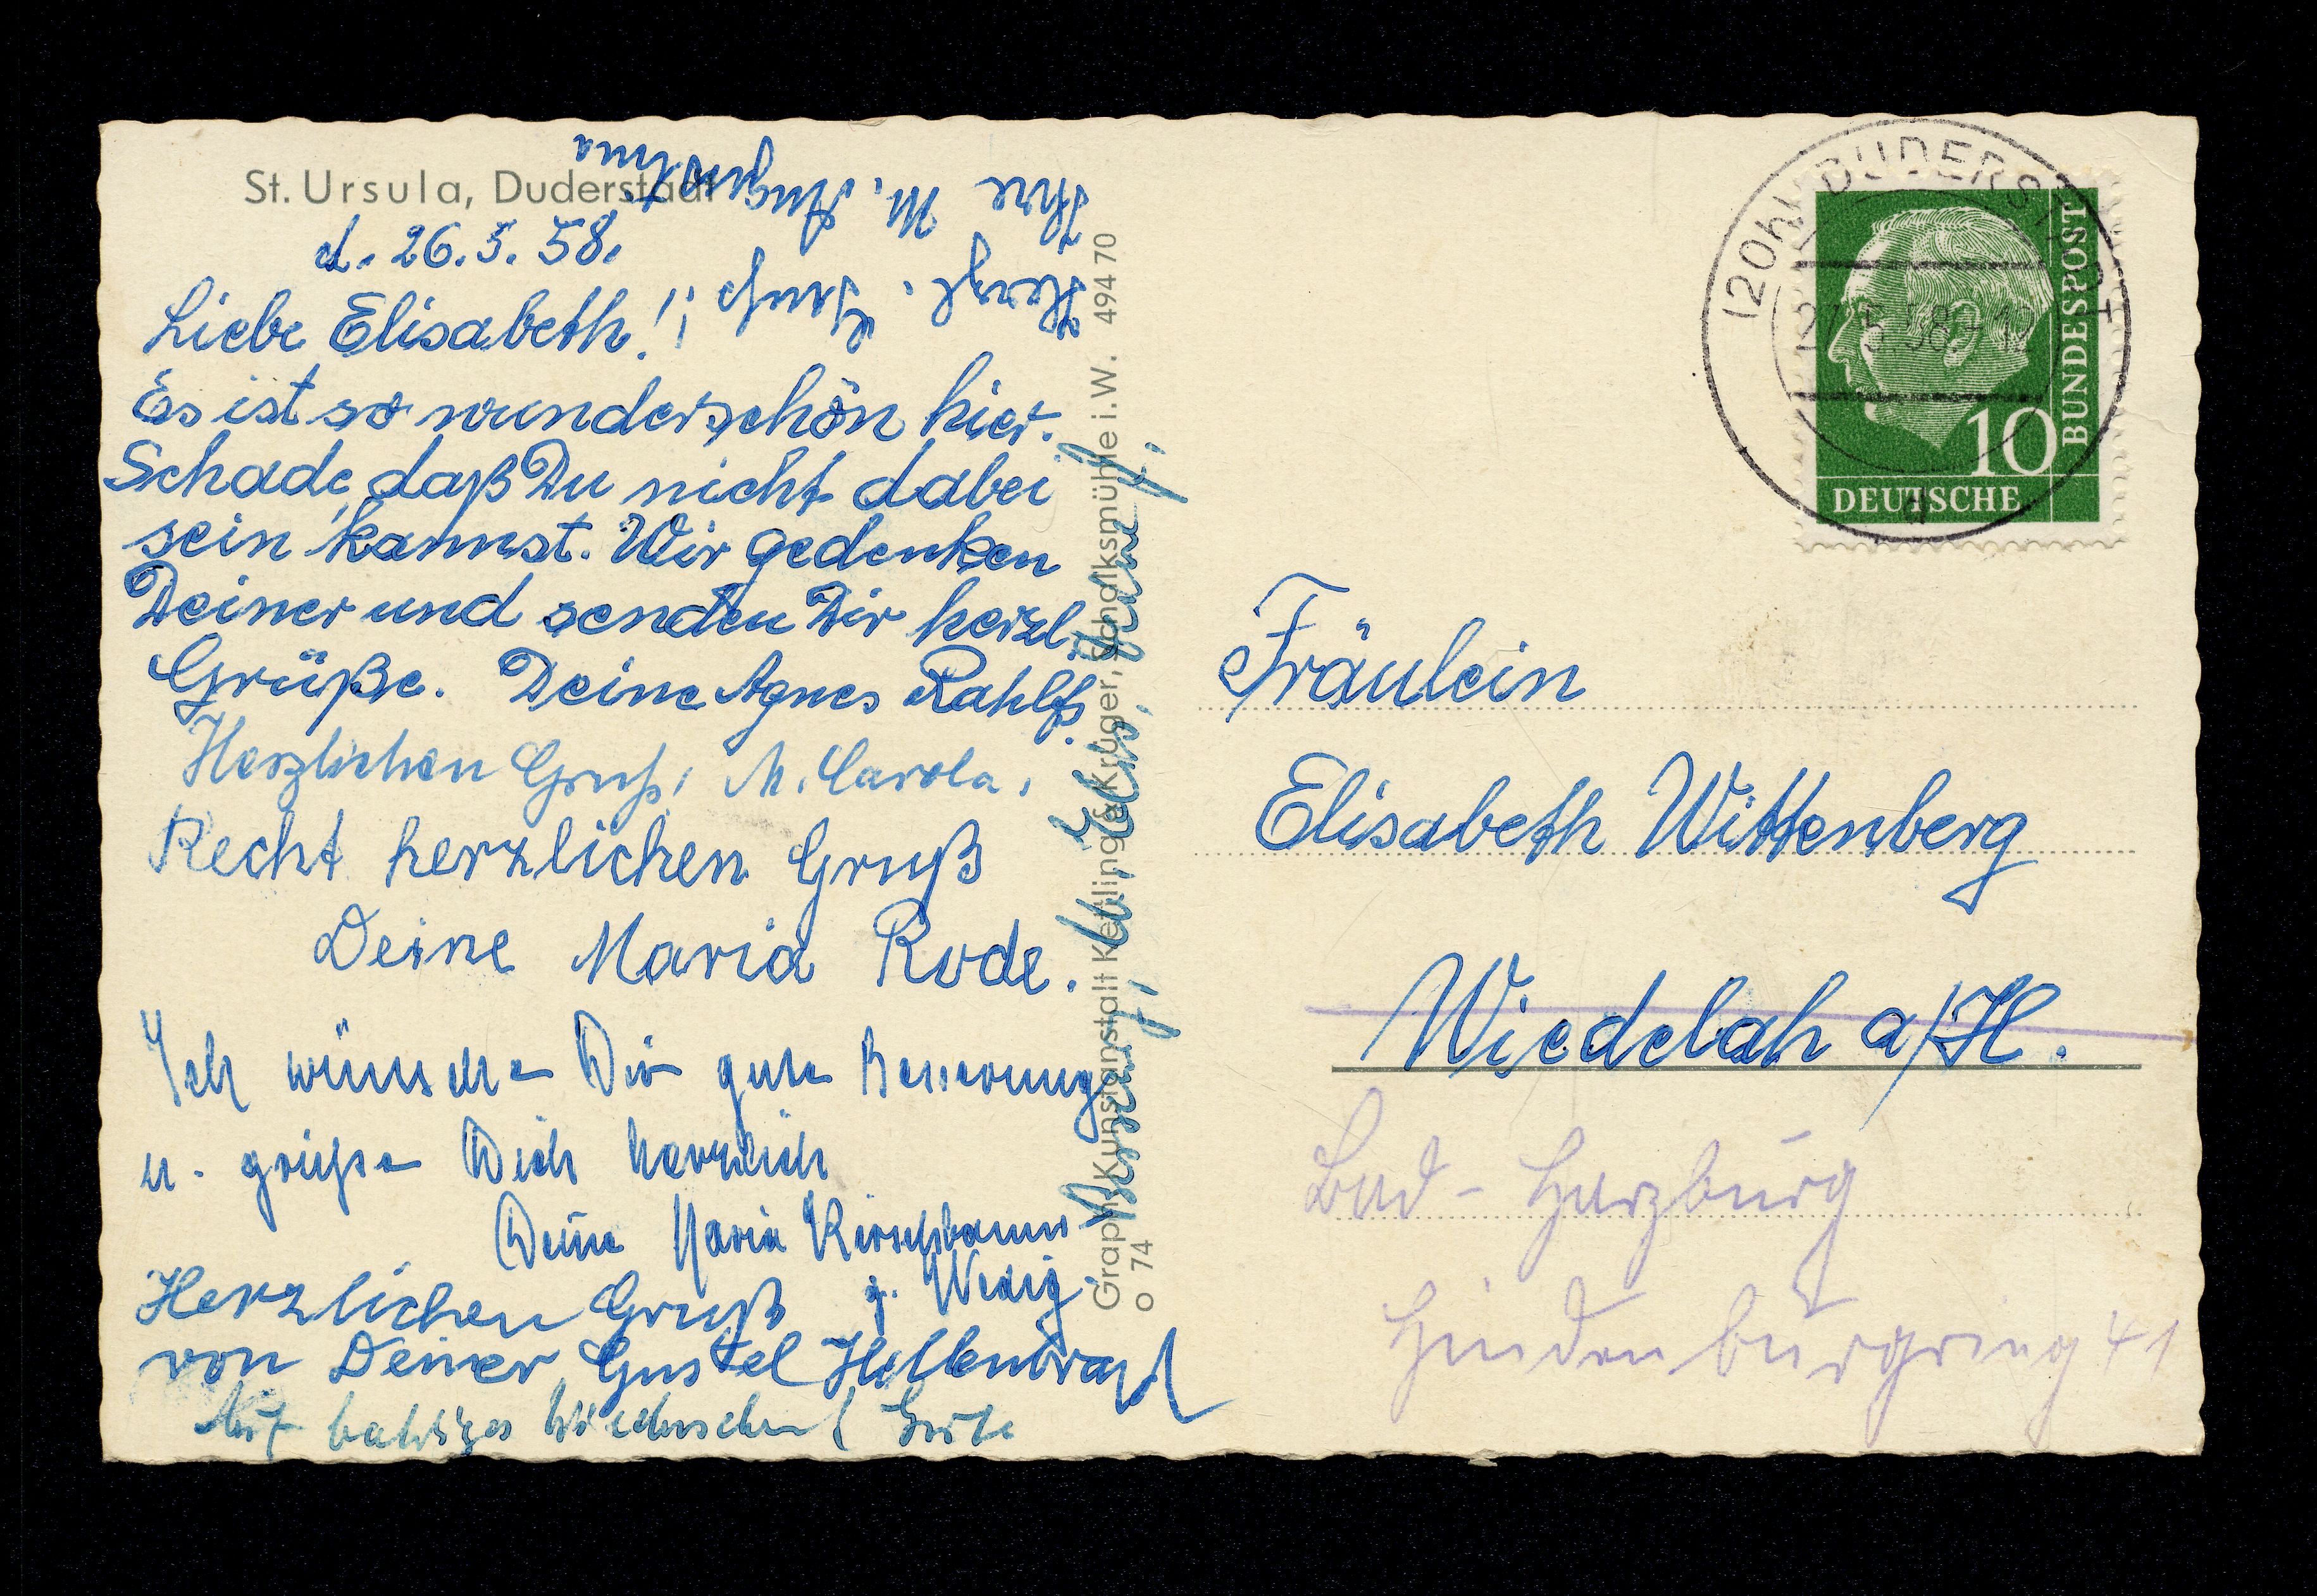 St. Ursula, Duderstadt
d. 26.5.58.
Liebe Elisabeth!
Es ist so wunderschön hier.
Schade, daß Du nicht dabei
sein kannst. Wir gedenken
Deiner und senden Dir herzl.
Grüße. Deine Agnes Rahlfs.
Herzlichen Gruß, M. Carola.
Recht herzlichen Gruß
Deine Maria Rode.
Ich wünsche Dir gute Besserung
u. grüße Dich herzlich
Deine Maria Kirschbaum
g. Wedig.
Herzlichen Gruß
von Deiner Gustel
Auf baldiges Wiedersehen!
Herzl. Gruß!
Ihre M. Angela
Graph. Kunstanstalt Kettling & Krüger, Schalksmühle i.W. 494 70
o 74
(20b) DUDERSTADT
27.5.58-12
a
10
DEUTSCHE
BUNDESPOST
Fräulein
Elisabeth Wittenberg
Wiedelah a/H.
Bad-Harzburg
Hindenburgring 41